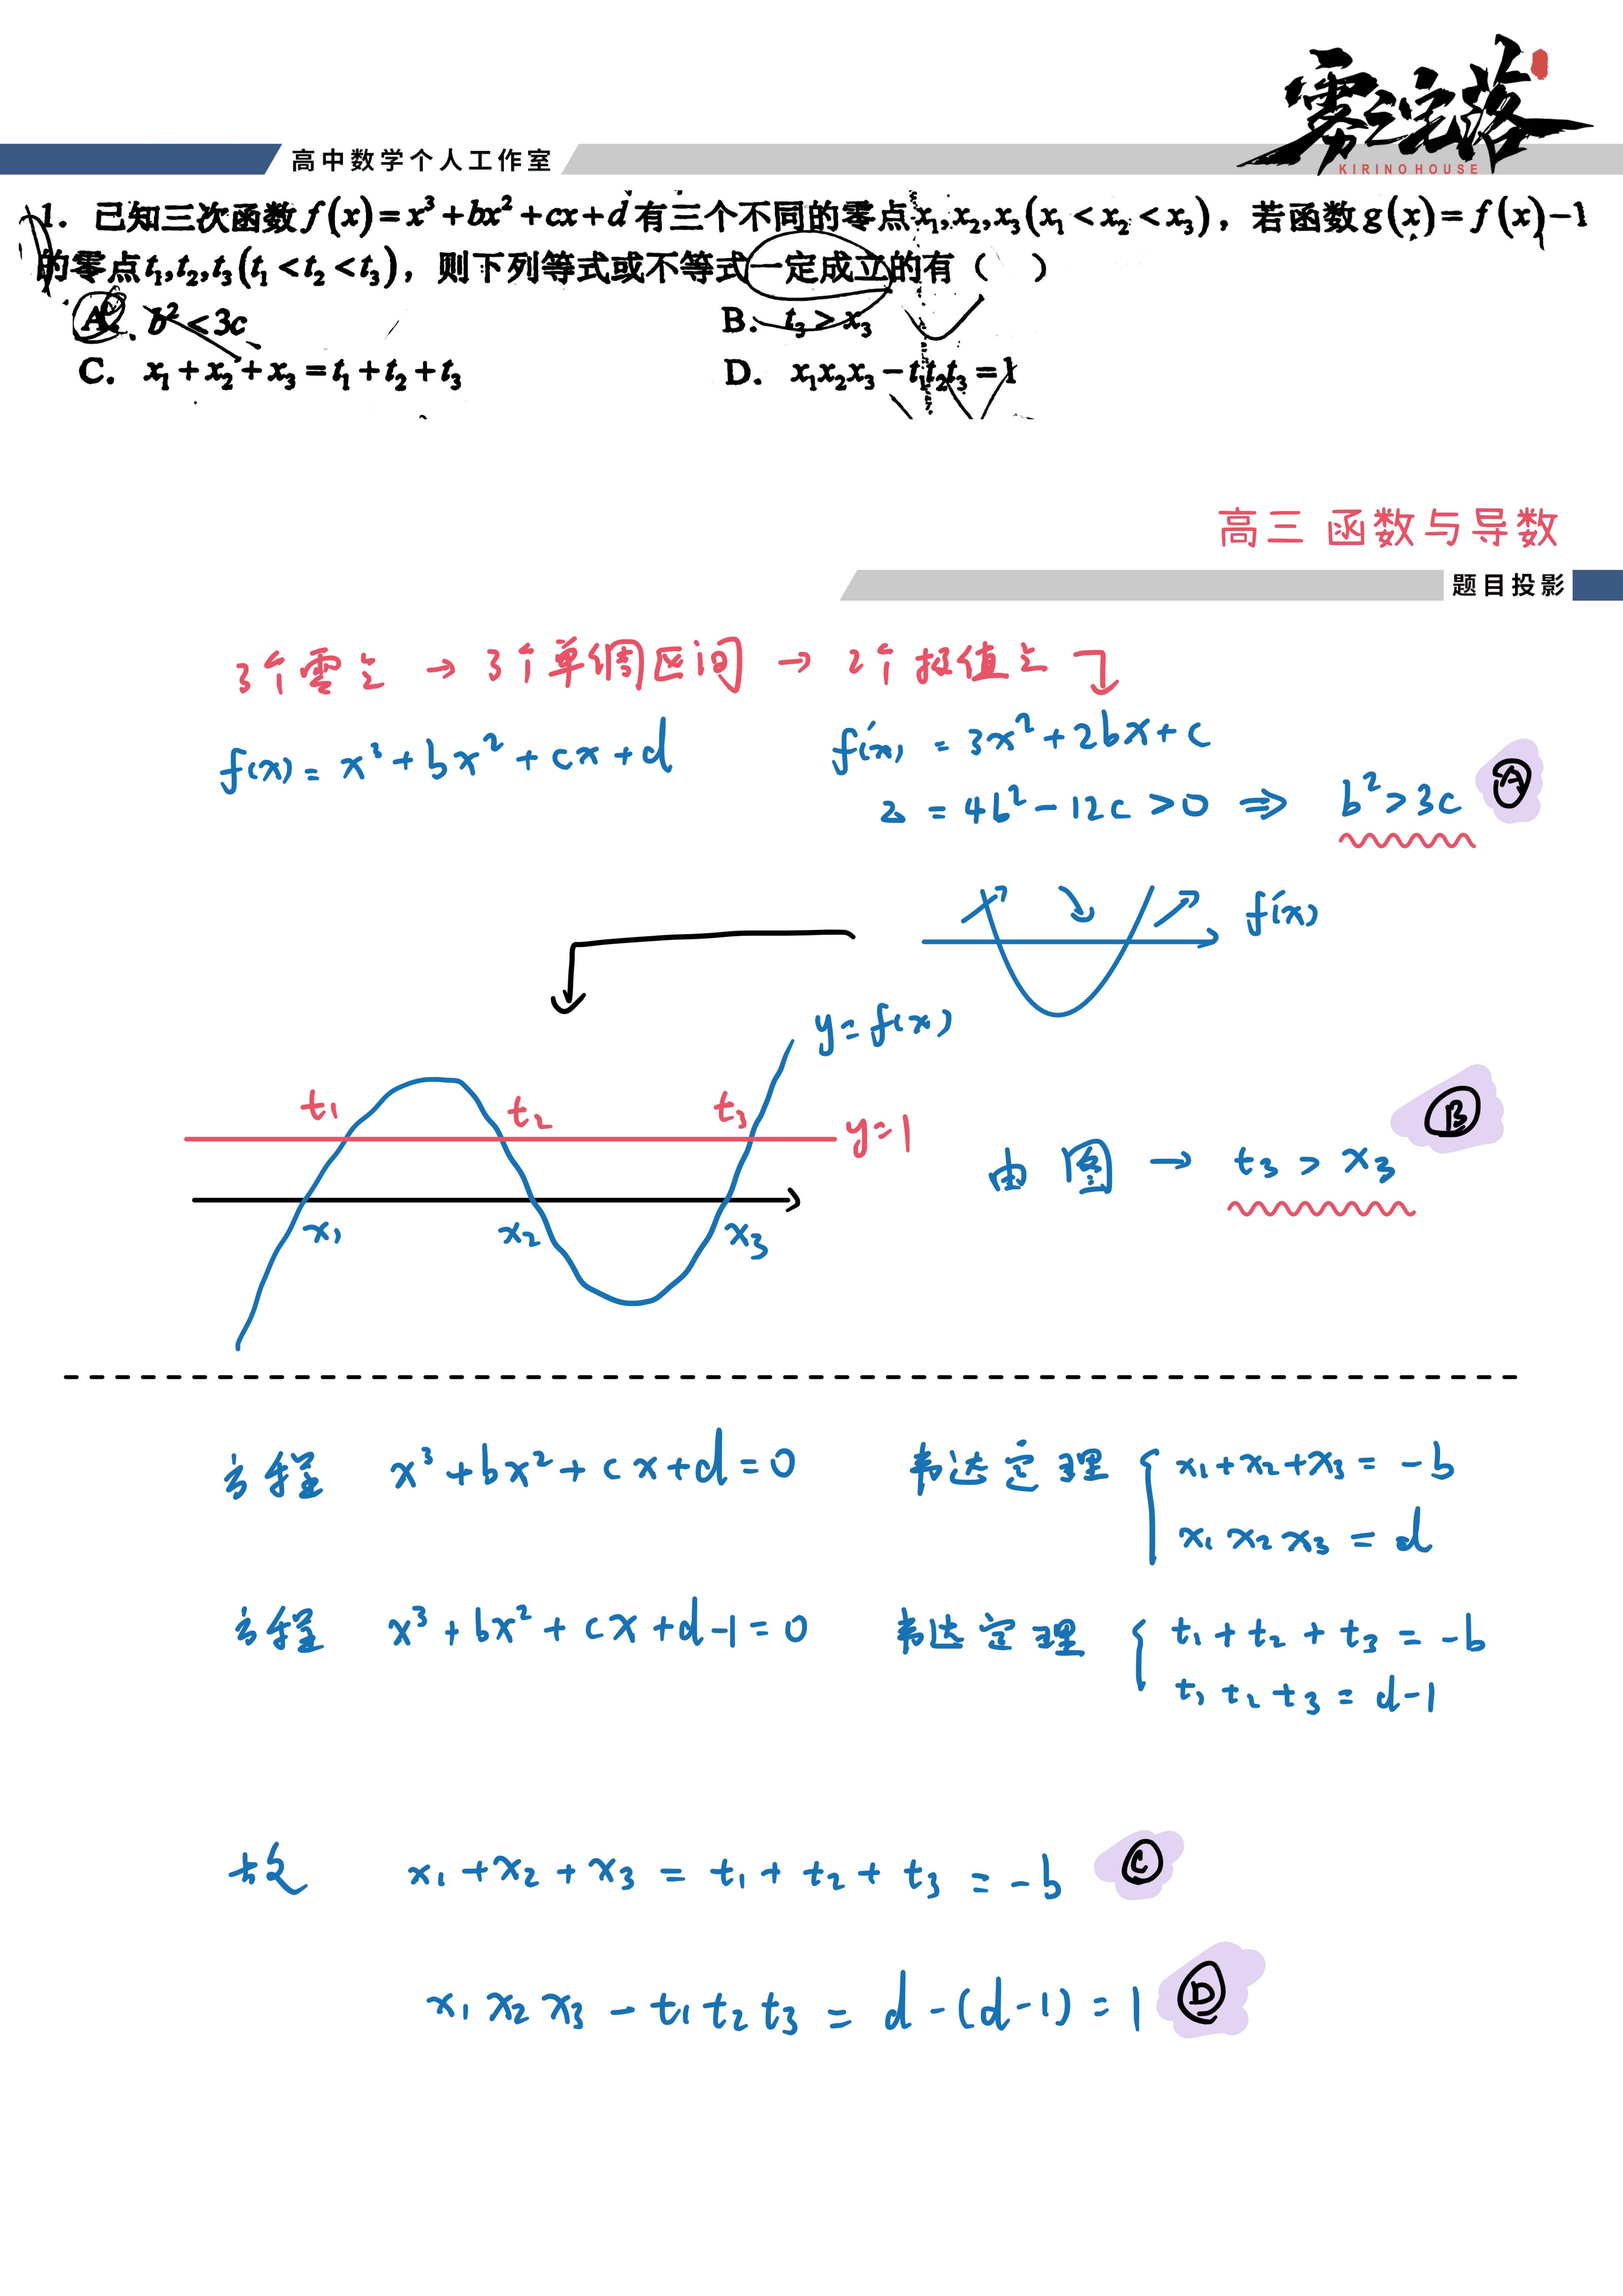 雾之宅落
KIRINO HOUSE
高中数学个人工作室
1. 已知三次函数f(x)=x³+bx²+cx+d有三个不同的零点x₁,x₂,x₃(x₁<x₂<x₃)，若函数g(x)=f(x)−1
的零点t₁,t₂,t₃(t₁<t₂<t₃)，则下列等式或不等式一定成立的有（ ）
A. b²<3c B. t₃>x₃
C. x₁+x₂+x₃=t₁+t₂+t₃ D. x₁x₂x₃−t₁t₂t₃=1
高三 函数与导数
题目投影
3个零点 → 3个单调区间 → 2个极值点
f(x) = x³+bx²+cx+d f'(x) = 3x²+2bx+c
Δ = 4b²−12c>0 ⇒ b²>3c A
f'(x)
y=f(x)
t₁ t₂ t₃ y=1
x₁ x₂ x₃
由图 → t₃ > x₃ B
方程 x³+bx²+cx+d=0 韦达定理 { x₁+x₂+x₃ = −b
x₁x₂x₃ = d
方程 x³+bx²+cx+d−1=0 韦达定理 { t₁+t₂+t₃ = −b
t₁t₂t₃ = d−1
故 x₁+x₂+x₃ = t₁+t₂+t₃ = −b C
x₁x₂x₃ − t₁t₂t₃ = d−(d−1) = 1 D